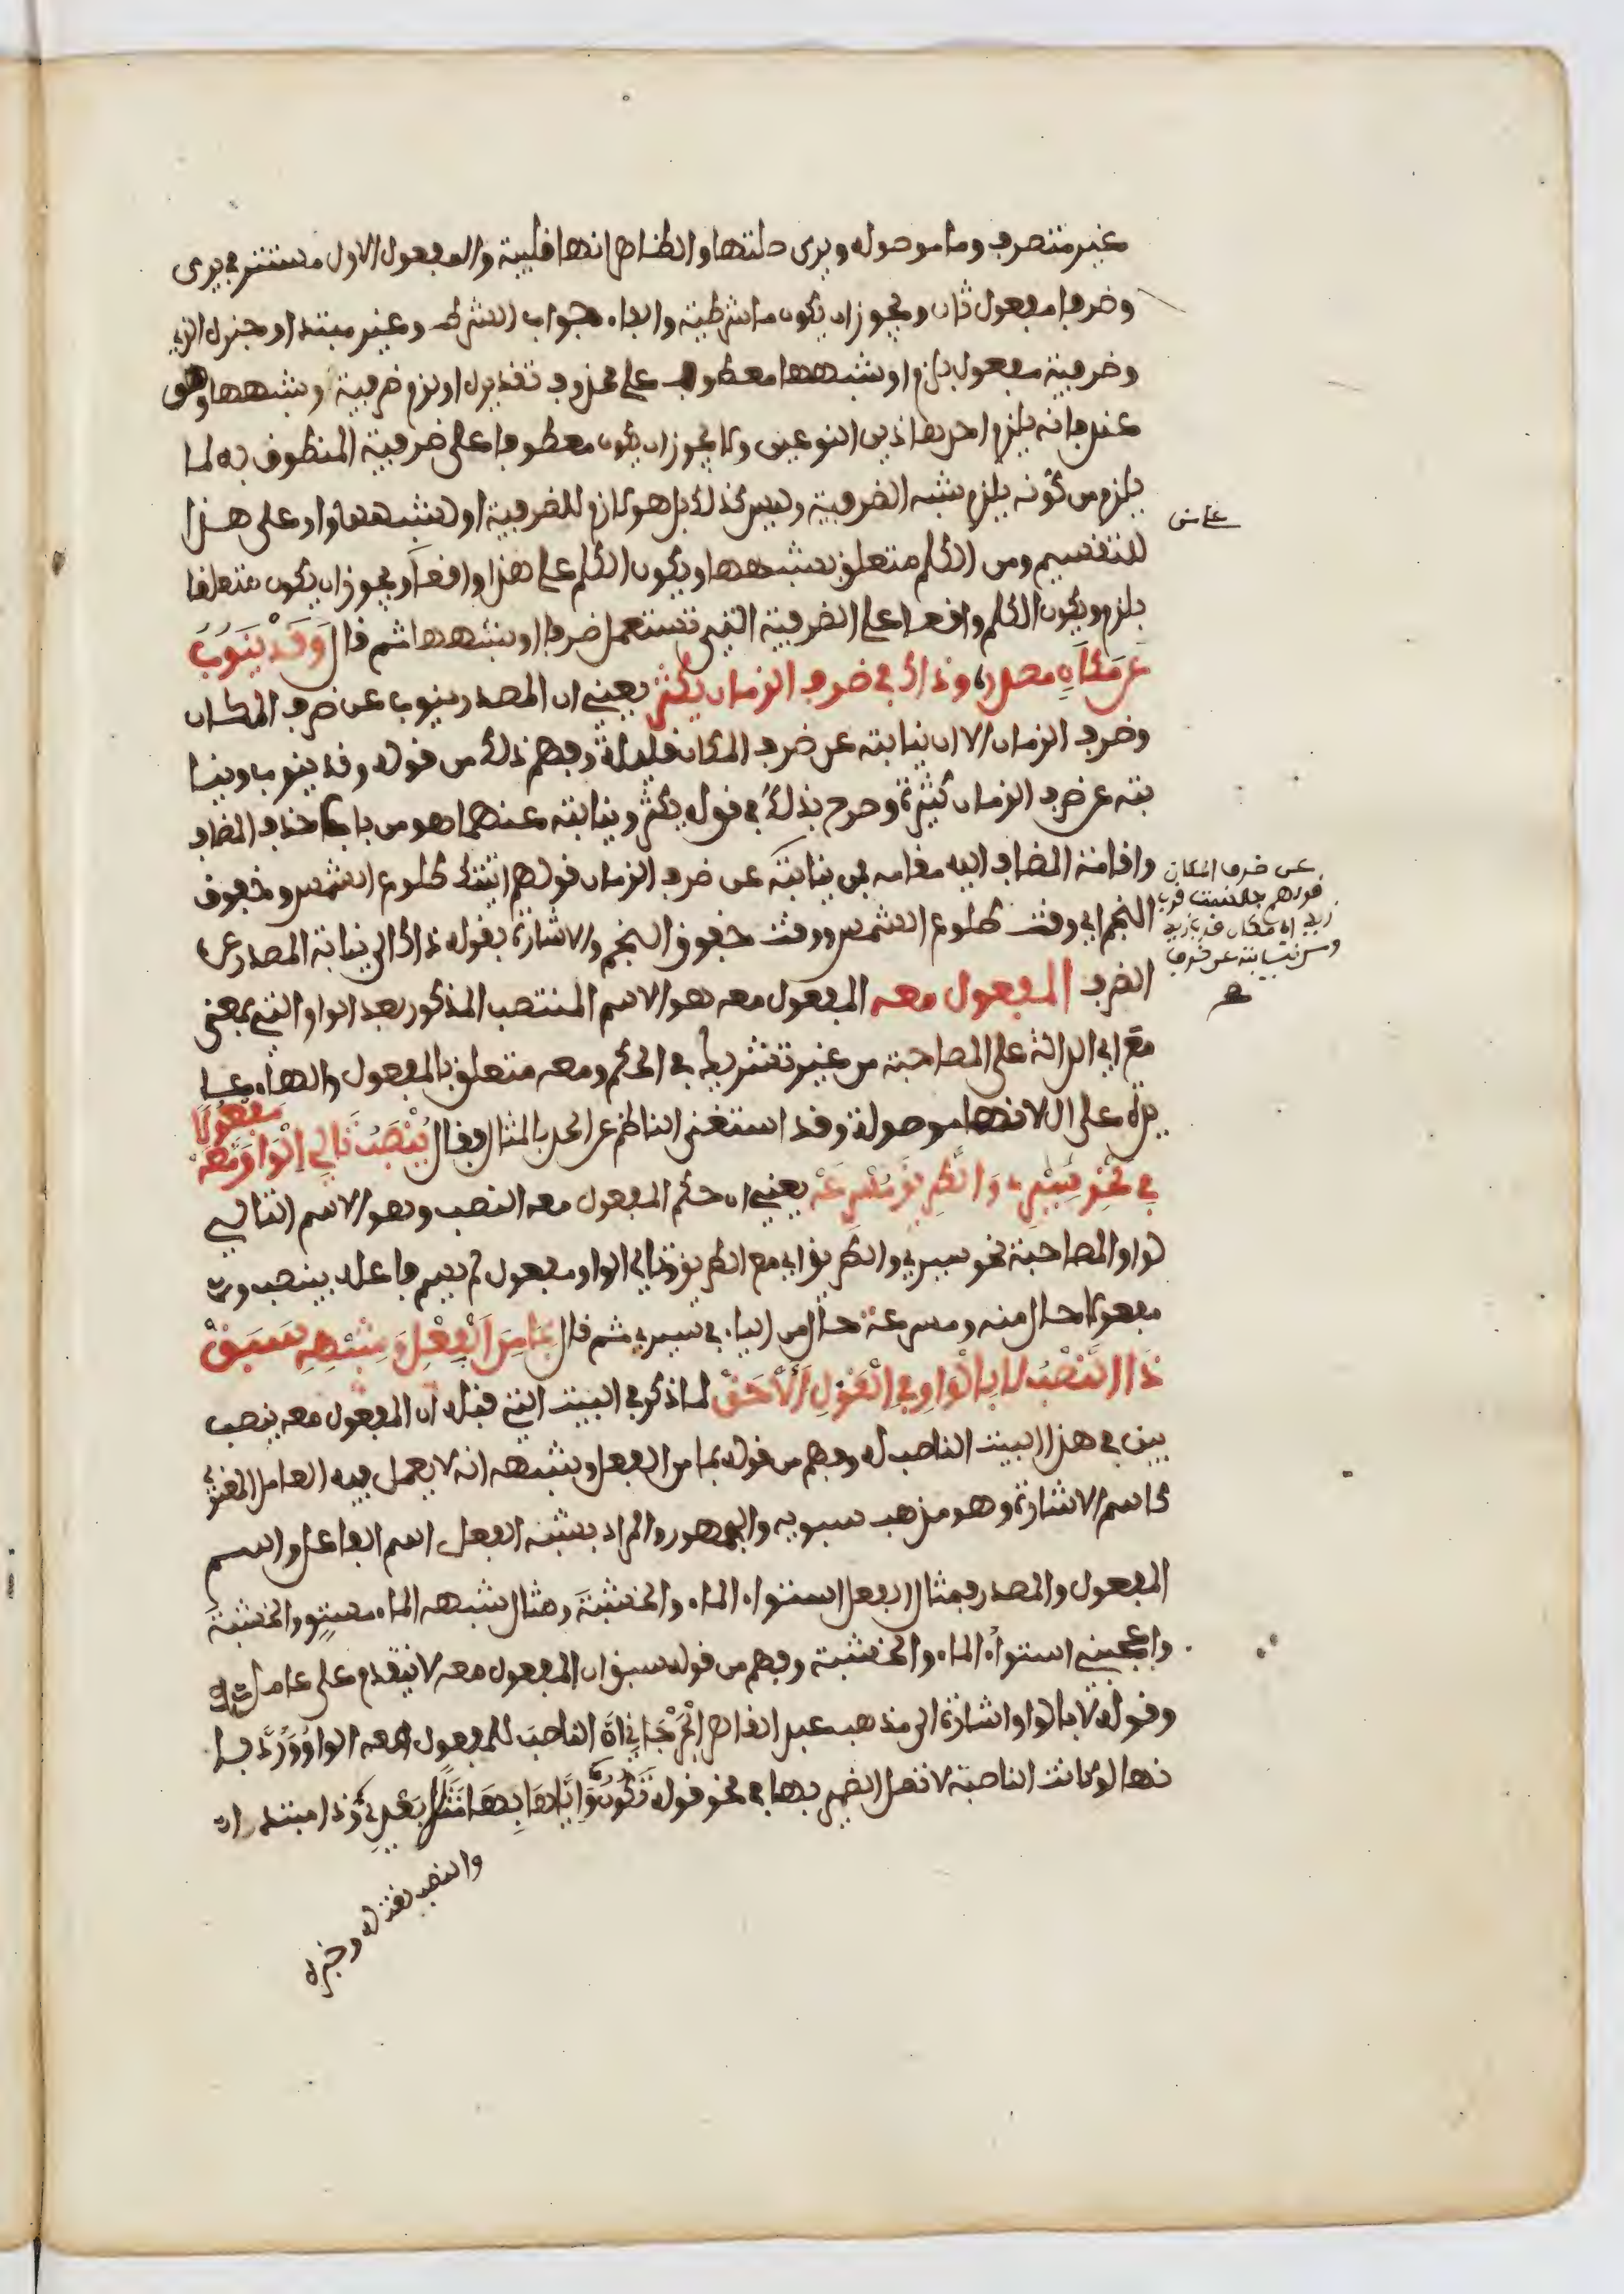 غير متصرف وما موصولة ويرى صلتها والظاهر انها قلبية والمفعول الاول مستتر في يرى
وظرفا مفعول ثان ويجوز ان يكون ما شرطية والفاء جواب الشرط وغير مبتدا وخبره الذي
وظرفية مفعول بلزم او شبهها معطوف على محذوف تقديره او لزم ظرفية او شبهها وهو
عند فانه يلزم احد هاذين النوعين ولا يجوز ان يكون معطوفا على ظرفية المنطوف به لما
يلزم من كونه يلزم شبه الظرفية وليس كذلك بل هو لازم للظرفية او لشبهها واو على هذا
للتقسيم ومن الكلم متعلق بشبهها ويكون الكلم على هذا واقعا ويجوز ان يكون متعلقا
بلزم ويكون الكلم واقعا على الظرفية التي تستعمل ظرفا او شبهها ثم قال وَقَدْ يَنُوبُ
عَن مَكَانٍ مصدر، وذاك في ظرف الزمان يكثر يعني ان المصدر ينوب عن ظرف المكان
وظرف الزمان الا ان نيابته عن ظرف المكان قليلة وفهم ذلك من قوله وقد ينوب ونيا
بته عن ظرف الزمان كثيرة وصرح بذلك في قوله يكثر ونيابته عنهما هو من باب حذف المضاف
واقامة المضاف اليه مقامه فمن نيابته عن ظرف الزمان قولهم اتيتك طلوع الشمس وخفوق
عن ظرف المكان
قولهم جلست قرب
زيد اي مكان قرب زيد
ومن نيابته عن ظرف
النجم اي وقت طلوع الشمس ووقت خفوق النجم والاشارة بقوله ذاك الى نيابة المصدر عن
الظرف المفعول معه المفعول معه هو الاسم المنتصب المذكور بعد الواو التي بمعنى
مع اي الدالة على المصاحبة من غير تشريك في الحكم ومعه متعلق بالمفعول والهاء عا
يدة على ال لانها موصولة وقد استغنى الناظم عن الحد بالمثال فقال يُنْصَبُ تَالِي الْوَاوِ مَفْعُولًا مَعَهْ
فِي نَحْوِ سِيرِي وَالطَّرِيقَ مُسْرِعَهْ يعني ان حكم المفعول معه النصب وهو الاسم التالي
لواو المصاحبة نحو سيري والطريق اي مع الطريق وتالي الواو مفعول لم يسم فاعله بينصب و
مفعولا حال منه ومسرعة حال من الياء في سيري ثم قال بِمَا مِنَ الْفِعْلِ وَشِبْهِهِ سَبَقْ
ذَا النَّصْبُ لَا بِالْوَاوِ فِي الْقَوْلِ الْأَحَقْ لما ذكر في البيت الذي قبله ان المفعول معه ينصب
بين في هذا البيت الناصب له وفهم من قوله بما من الفعل وشبهه انه لا يعمل فيه العامل المعنوي
كاسم الاشارة وهو مذهب سبويه والجمهور والمراد بشبه الفعل اسم الفاعل واسم
المفعول والمصدر فمثال الفعل استواء الماء والخشبة ومثال شبهه الماء مستو والخشبة
واعجبني استواء الماء والخشبة وفهم من قوله سبق ان المفعول معه لا يتقدم على عامله
وقوله لا بالواو اشارة الى مذهب عبد القاهر الجرجاني ان الناصب للمفعول معه الواو ورد با
نها لو كانت الناصبة لاتصل الضمير بها في نحو قوله تَكُون وَإِيَّاهَا بِهَا مَثَلًا بَعْدِي وذا مبتدا
والنصب نعت له وخبره